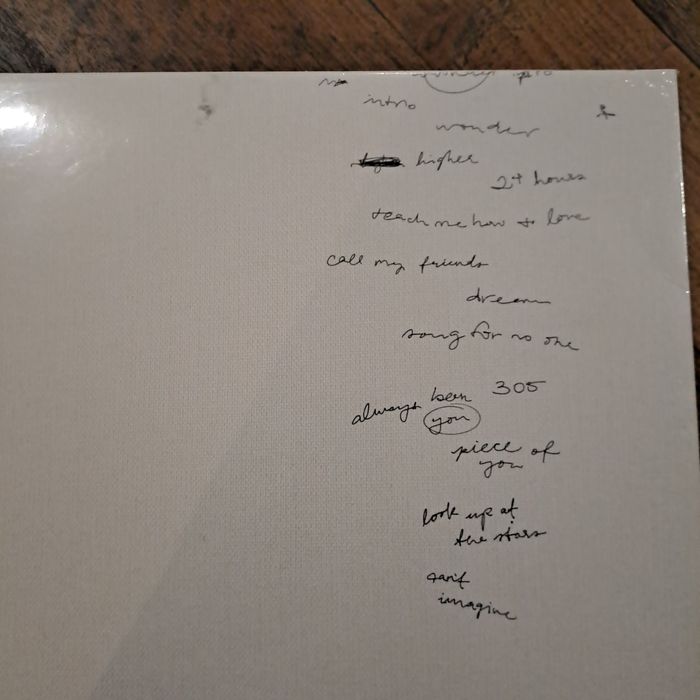 intro
intro
wonder
higher
24 hours
teach me how to love
call my friends
dream
song for no one
305
always been
you
piece of
you
look up at
the stars
can't
imagine